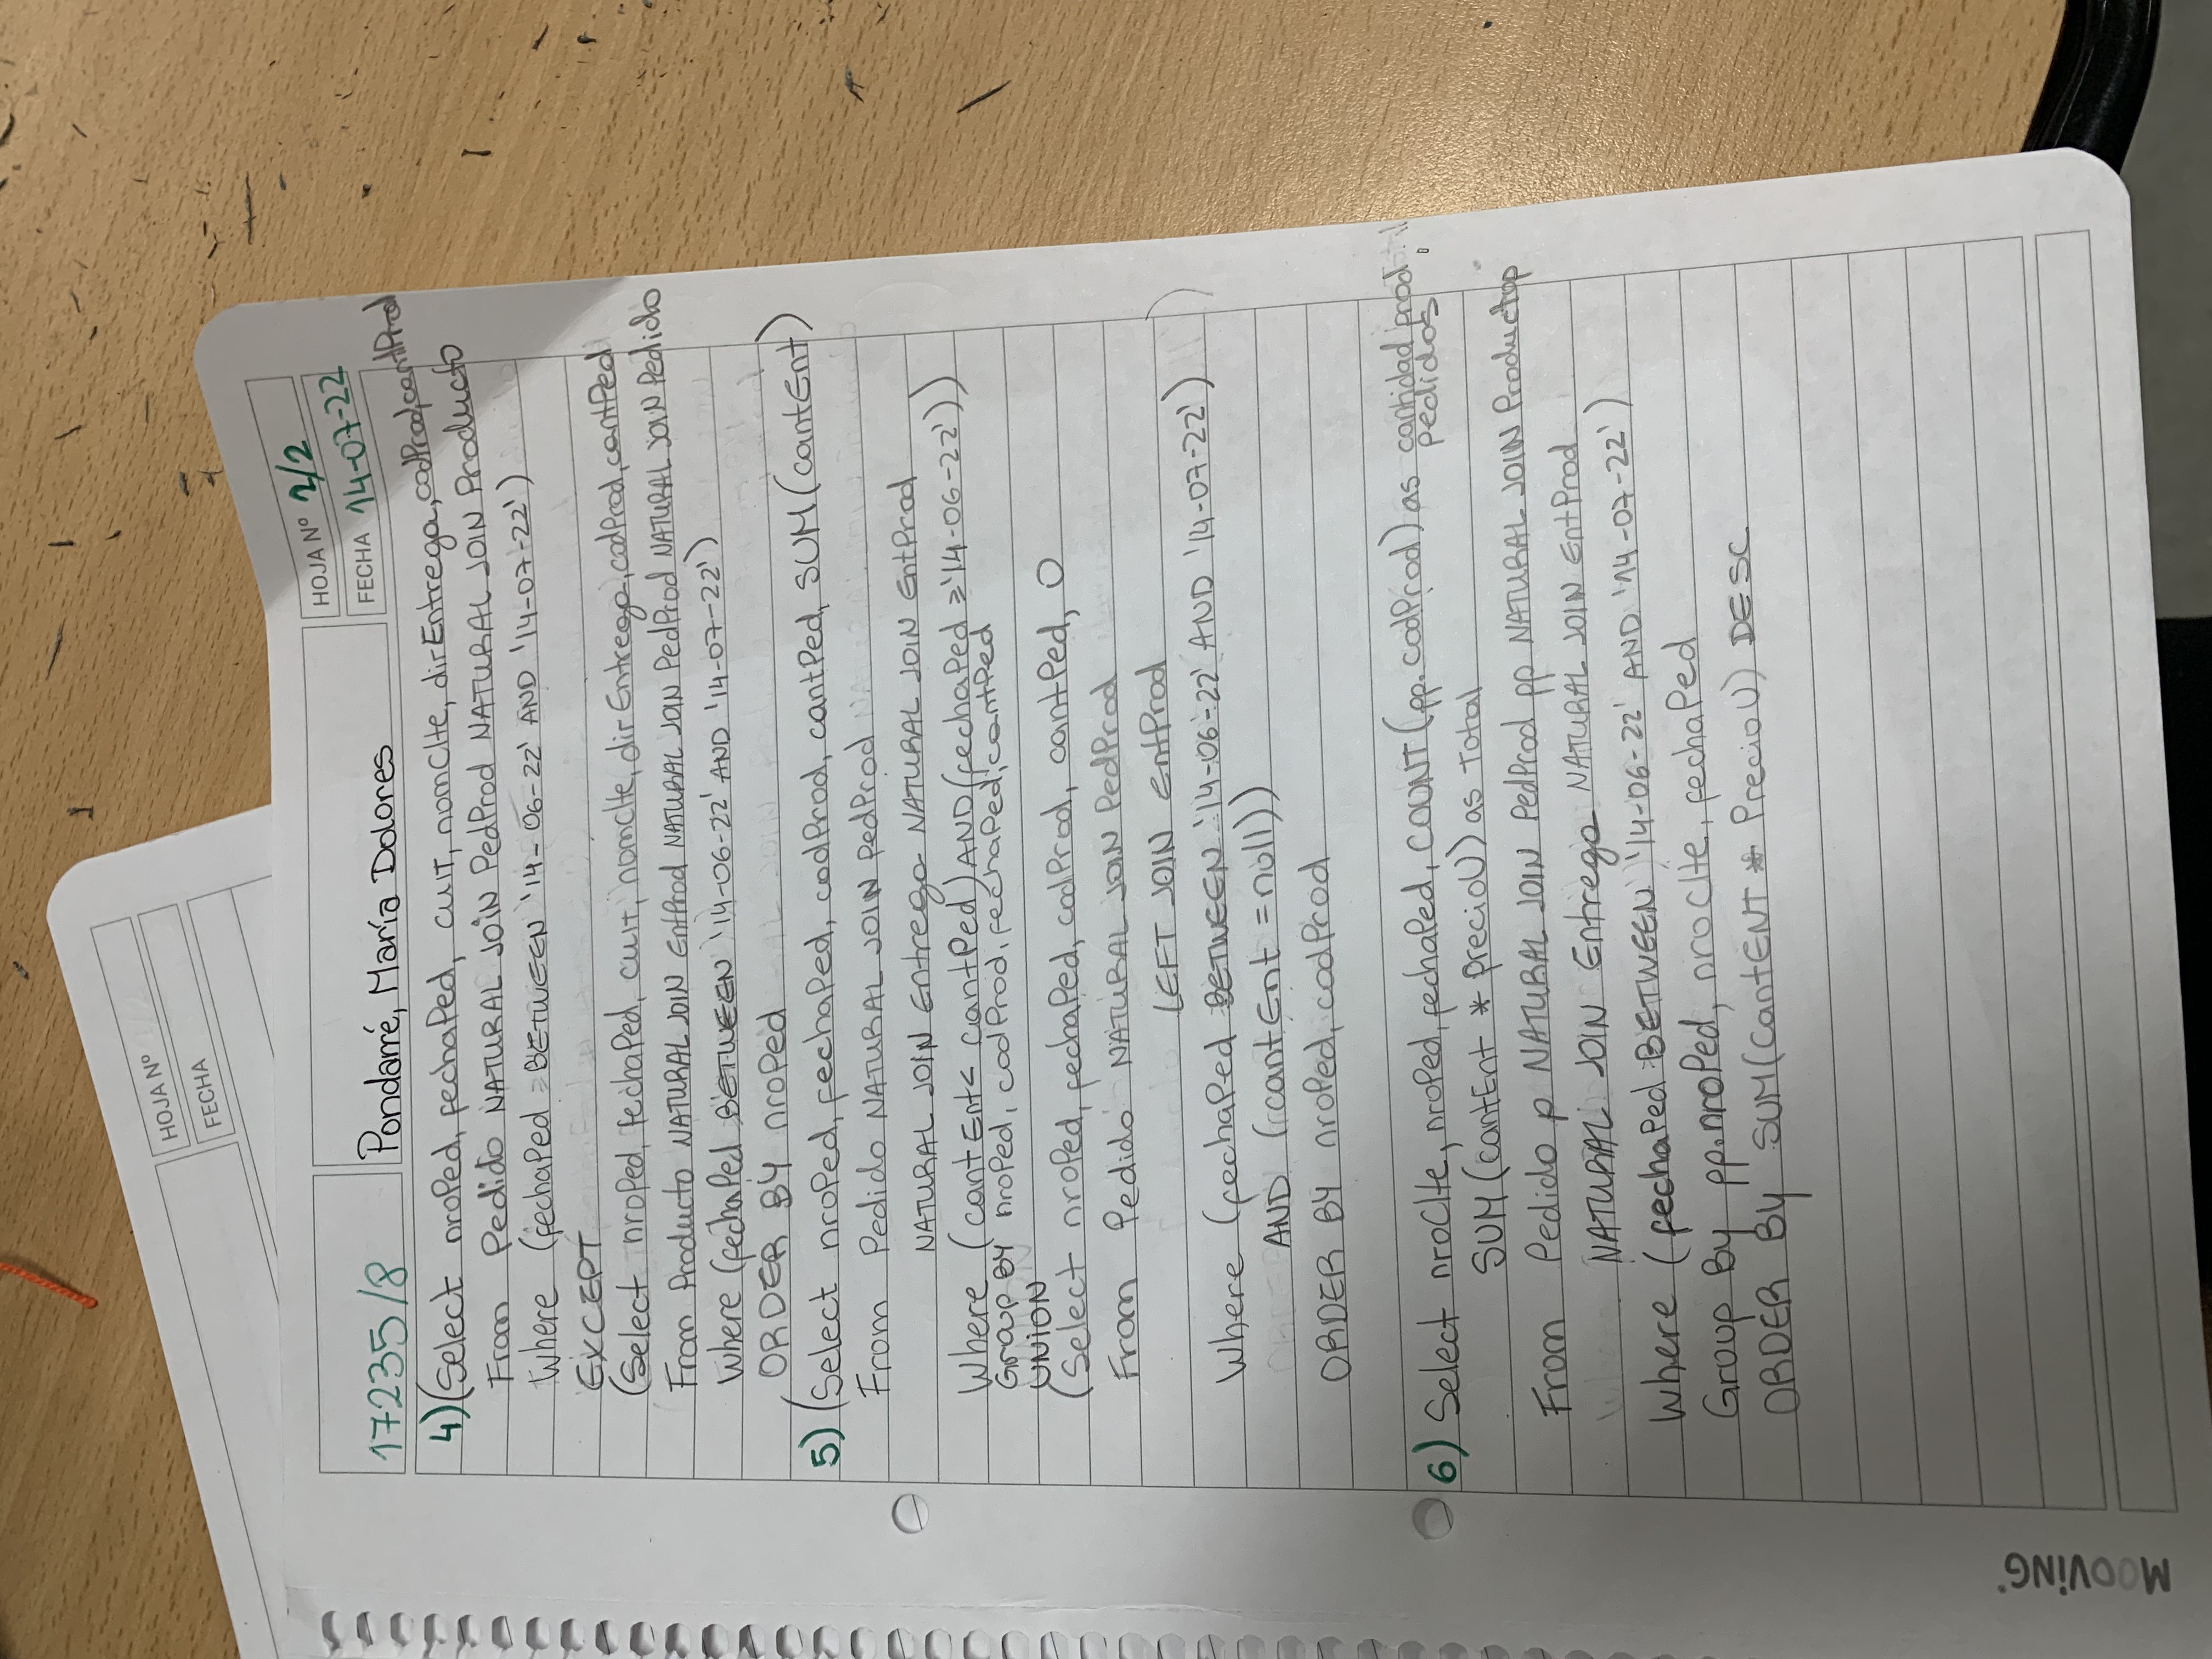 HOJA Nº
FECHA
HOJA Nº 2/2
FECHA 14-07-22
17235/8
Pondarré, María Dolores
4) (Select nroPed, fechaPed, cuit, nomClte, dirEntrega, codProd, cantProd
From Pedido NATURAL JOIN PedProd NATURAL JOIN Producto
Where (fechaPed BETWEEN '14-06-22' AND '14-07-22')
EXCEPT
(Select nroPed, fechaPed, cuit, nomClte, dirEntrega, codProd, cantPed
From Producto NATURAL JOIN EntProd NATURAL JOIN PedProd NATURAL JOIN Pedido
Where (fechaPed BETWEEN '14-06-22' AND '14-07-22')
ORDER BY nroPed
5) (Select nroPed, fechaPed, codProd, cantPed, SUM(cantEnt)
From Pedido NATURAL JOIN PedProd
NATURAL JOIN Entrega NATURAL JOIN EntProd
Where (cantEnt< cantPed) AND (fechaPed ≥ '14-06-22'))
Group BY nroPed, codProd, fechaPed, cantPed
UNION
(Select nroPed, fechaPed, codProd, cantPed, 0
From Pedido NATURAL JOIN PedProd
LEFT JOIN EntProd
Where (fechaPed BETWEEN '14-06-22' AND '14-07-22')
AND (cantEnt =null))
ORDER BY nroPed, codProd
6) Select nroClte, nroPed, fechaPed, COUNT(pp.codProd) as cantidad prod
pedidos
SUM(cantEnt * precioU) as Total
From Pedido p NATURAL JOIN PedProd pp NATURAL JOIN Producto p
NATURAL JOIN Entrega NATURAL JOIN EntProd
Where (fechaPed BETWEEN '14-06-22' AND '14-07-22')
Group By pp.nroPed, nroClte, fechaPed
ORDER By SUM(CantENT * PrecioU) DESC
MOOVING